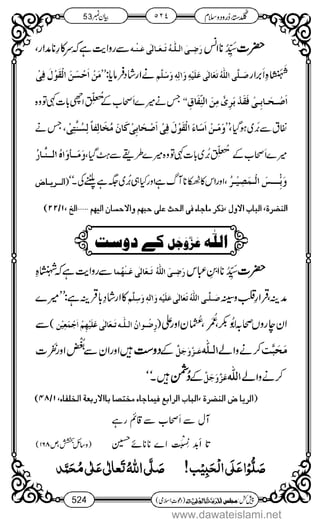 بیان نمبر 53
٥٢٤
گلدستۂ درود و سلام
حضرت سیِّدُنا انس رَضِیَ اللہُ تَعَالٰی عَنْہ سے روایت ہے کہ سرکارِ نامدار،
شہنشاہِ ابرار صَلَّی اللہُ تَعَالٰی عَلَیْہِ وَاٰلِہٖ وَسَلَّم نے ارشاد فرمایا: ”مَنْ اَحْسَنَ الْقَوْلَ فِیْ
اَصْحَابِیْ فَقَدْ بَرِیَٔ مِنَ النِّفَاقِ“ جس نے میرے اَصحاب کے مُتَعَلِّق اچھی بات کہی تو وہ
نفاق سے بری ہوگیا، ”وَمَنْ اَسَاءَ الْقَوْلَ فِیْ اَصْحَابِیْ کَانَ مُخَالِفًا لِّسُنَّتِیْ“، جس نے
میرے اَصحاب کے مُتَعَلِّق بُری بات کہی تو وہ میرے طریقے سے ہٹ گیا، ”وَمَاْوَاہُ النَّارُ
وَبِئْسَ الْمَصِیْرُ“، اور اس کا ٹھکانا آگ ہے اور کیا ہی بُری جگہ ہے پلٹنے کی۔“ (الریاض
النضرة، الباب الاول، ذکر ماجاء فی الحث علی حبهم والاحسان الیهم ....الخ، ٢٢/١)
اللہ عَزَّوَجَلَّ کے دوست
حضرت سیِّدُنا ابنِ عباس رَضِیَ اللہُ تَعَالٰی عَنْہُمَا سے روایت ہے کہ شہنشاہِ
مدینہ، قرارِ قلب و سینہ صَلَّی اللہُ تَعَالٰی عَلَیْہِ وَاٰلِہٖ وَسَلَّم کا ارشادِ باقرینہ ہے: ”میرے
ان چاروں صحابہ ابُوبکر، عُمَر، عُثمان، اور علی (رِضْوَانُ اللہِ تَعَالٰی عَلَیْہِمْ اَجْمَعِیْن) سے
مَحَبَّت کرنے والے اللہ عَزَّوَجَلَّ کے دوست ہیں اور ان سے بُغْض اور نَفْرت
کرنے والے اللہ عَزَّوَجَلَّ کے دُشمن ہیں۔“
(الریاض النضرة ،الباب الرابع فیماجاء مختصا بالاربعة الخلفاء، ٤٨/١)
آل سے اَصحاب سے قائم رہے
تا اَبَد نِسبت اے نانائے حسین (وسائلِ بخشش، ص ۱۹۸)
صَلُّوْا عَلَی الْحَبِیْب! صَلَّی اللہُ تَعَالٰی عَلٰی مُحَمَّد
524
www.dawateislami.net